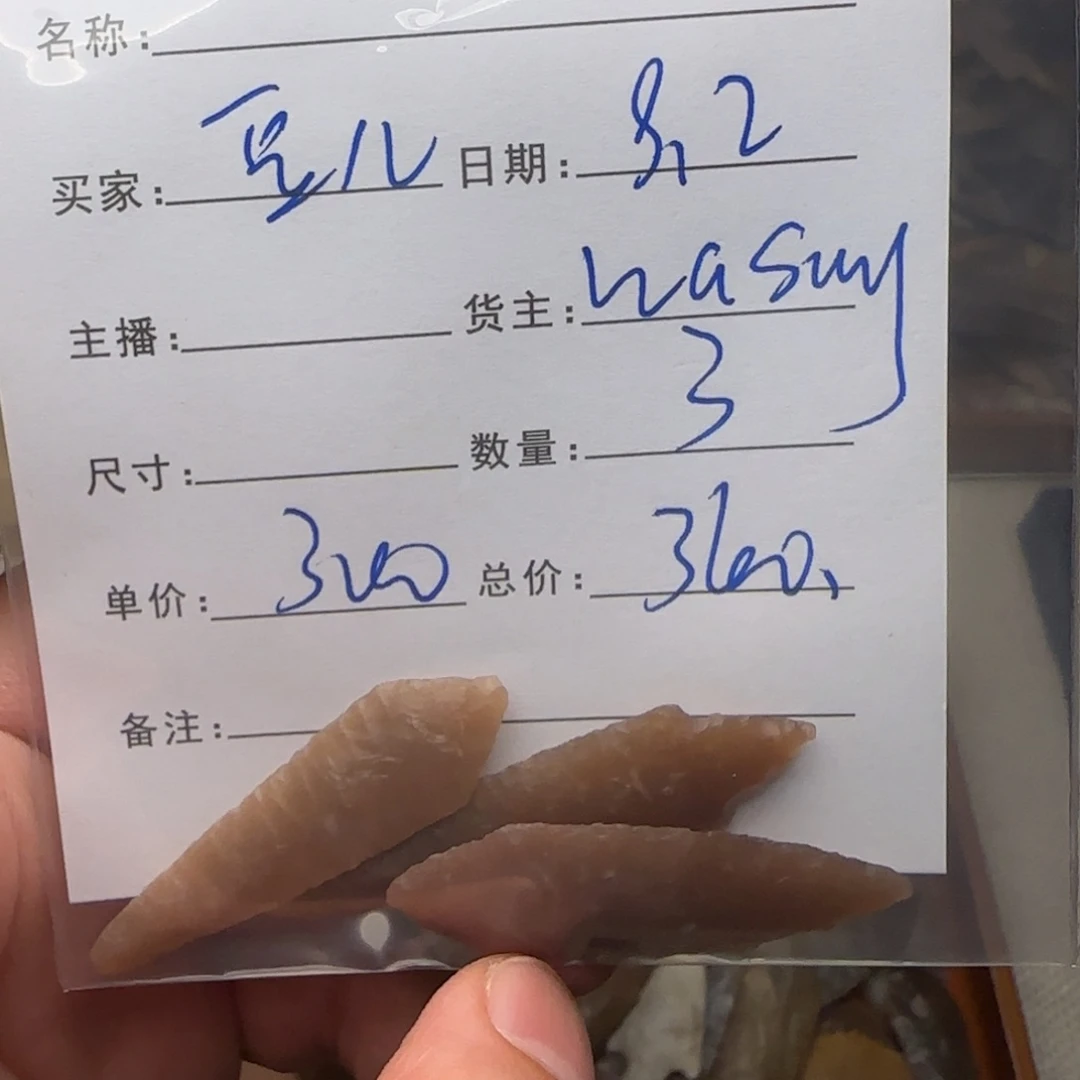 名称:
买家: 豆儿 日期: 8,2
主播: 货主:
尺寸: 数量: 3
单价: 300 总价: 360.
备注: